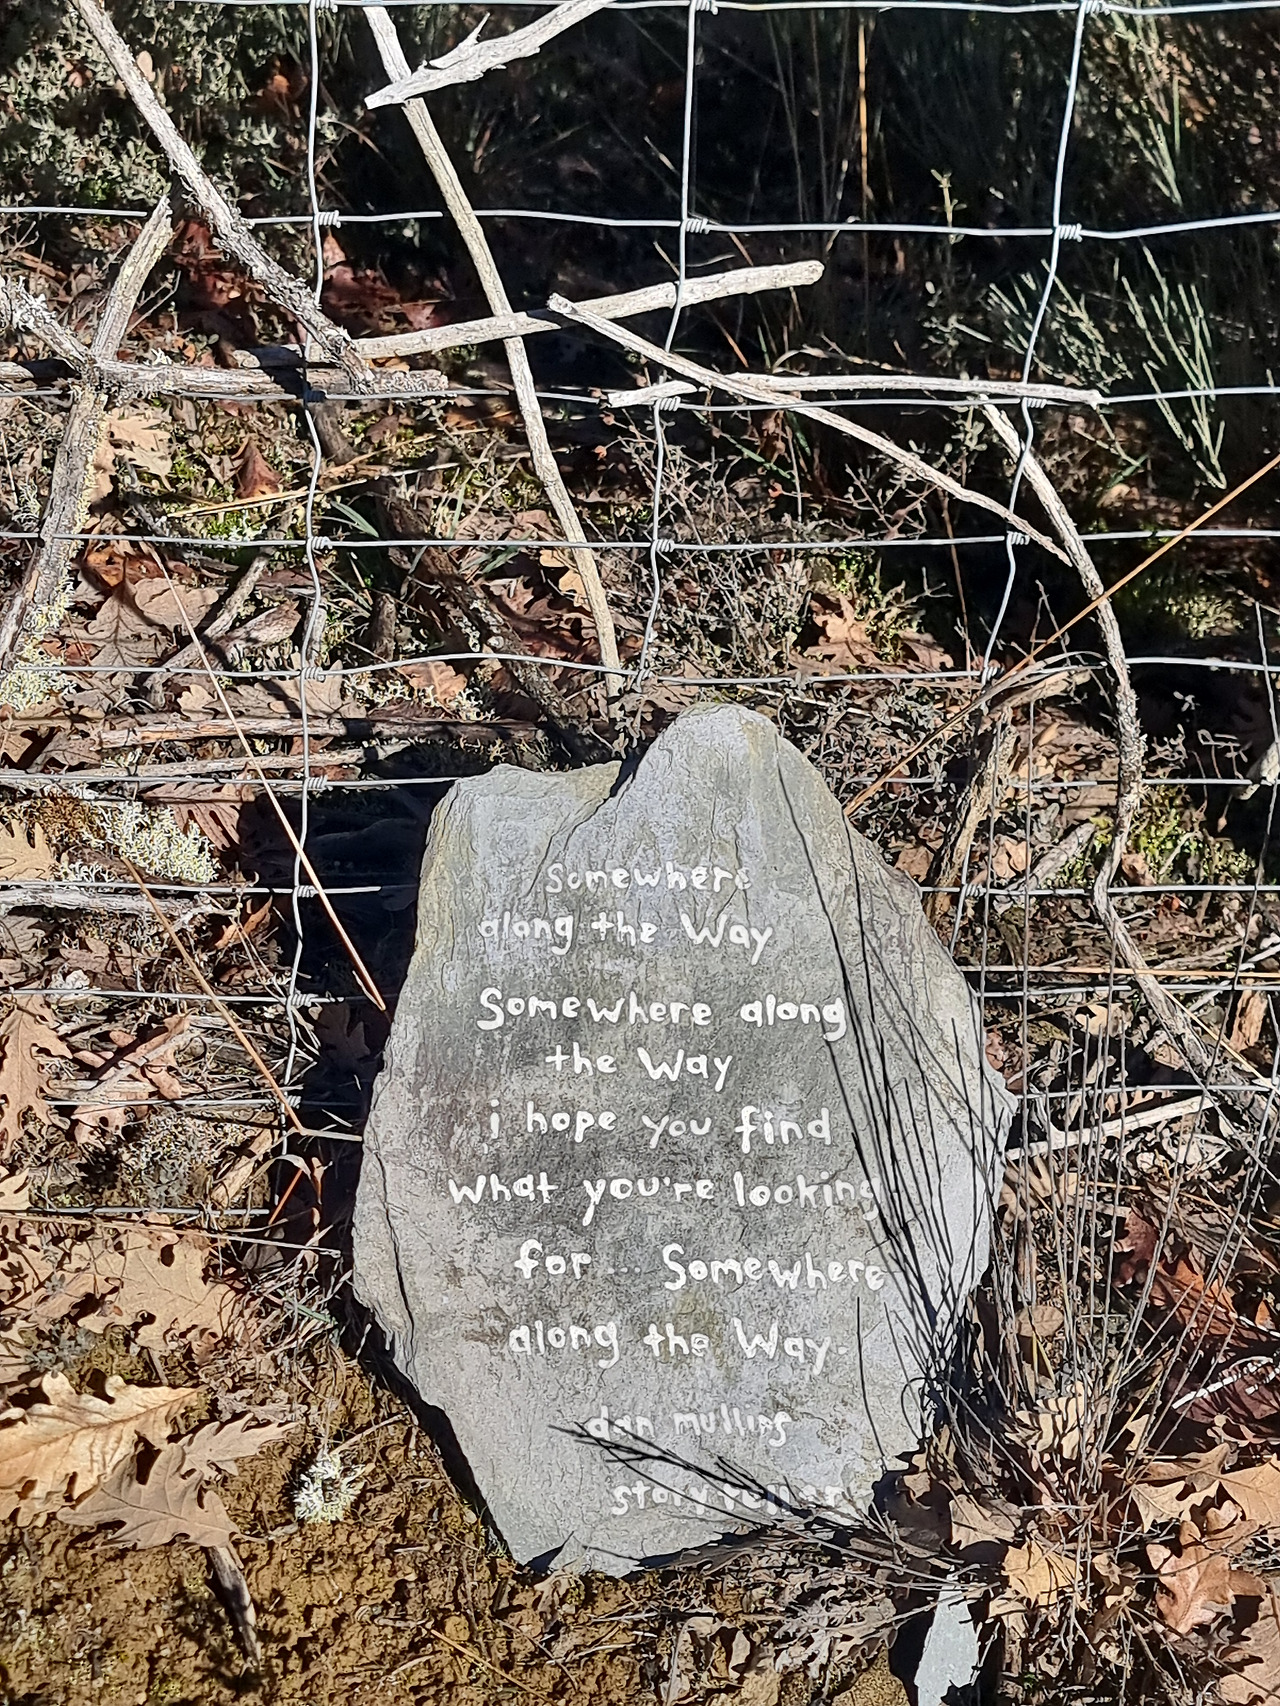 Somewhere
along the Way
Somewhere along
the Way
i hope you find
what you're looking
for ... Somewhere
along the Way.
dan mullins
story teller